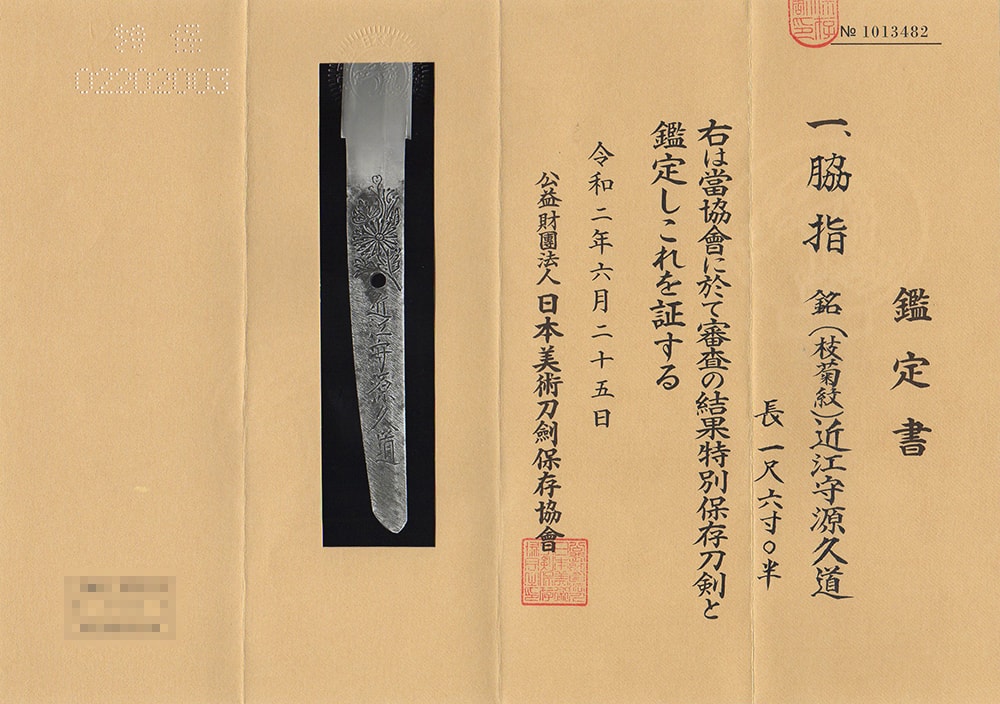 № 1013482
鑑定書
一、脇指 銘(枝菊紋)近江守源久道
長 一尺六寸〇半
右は當協會に於て審査の結果特別保存刀剣と
鑑定しこれを証する
令和二年六月二十五日
公益財團法人 日本美術刀劍保存協會
近江守源久道
特保
02202003